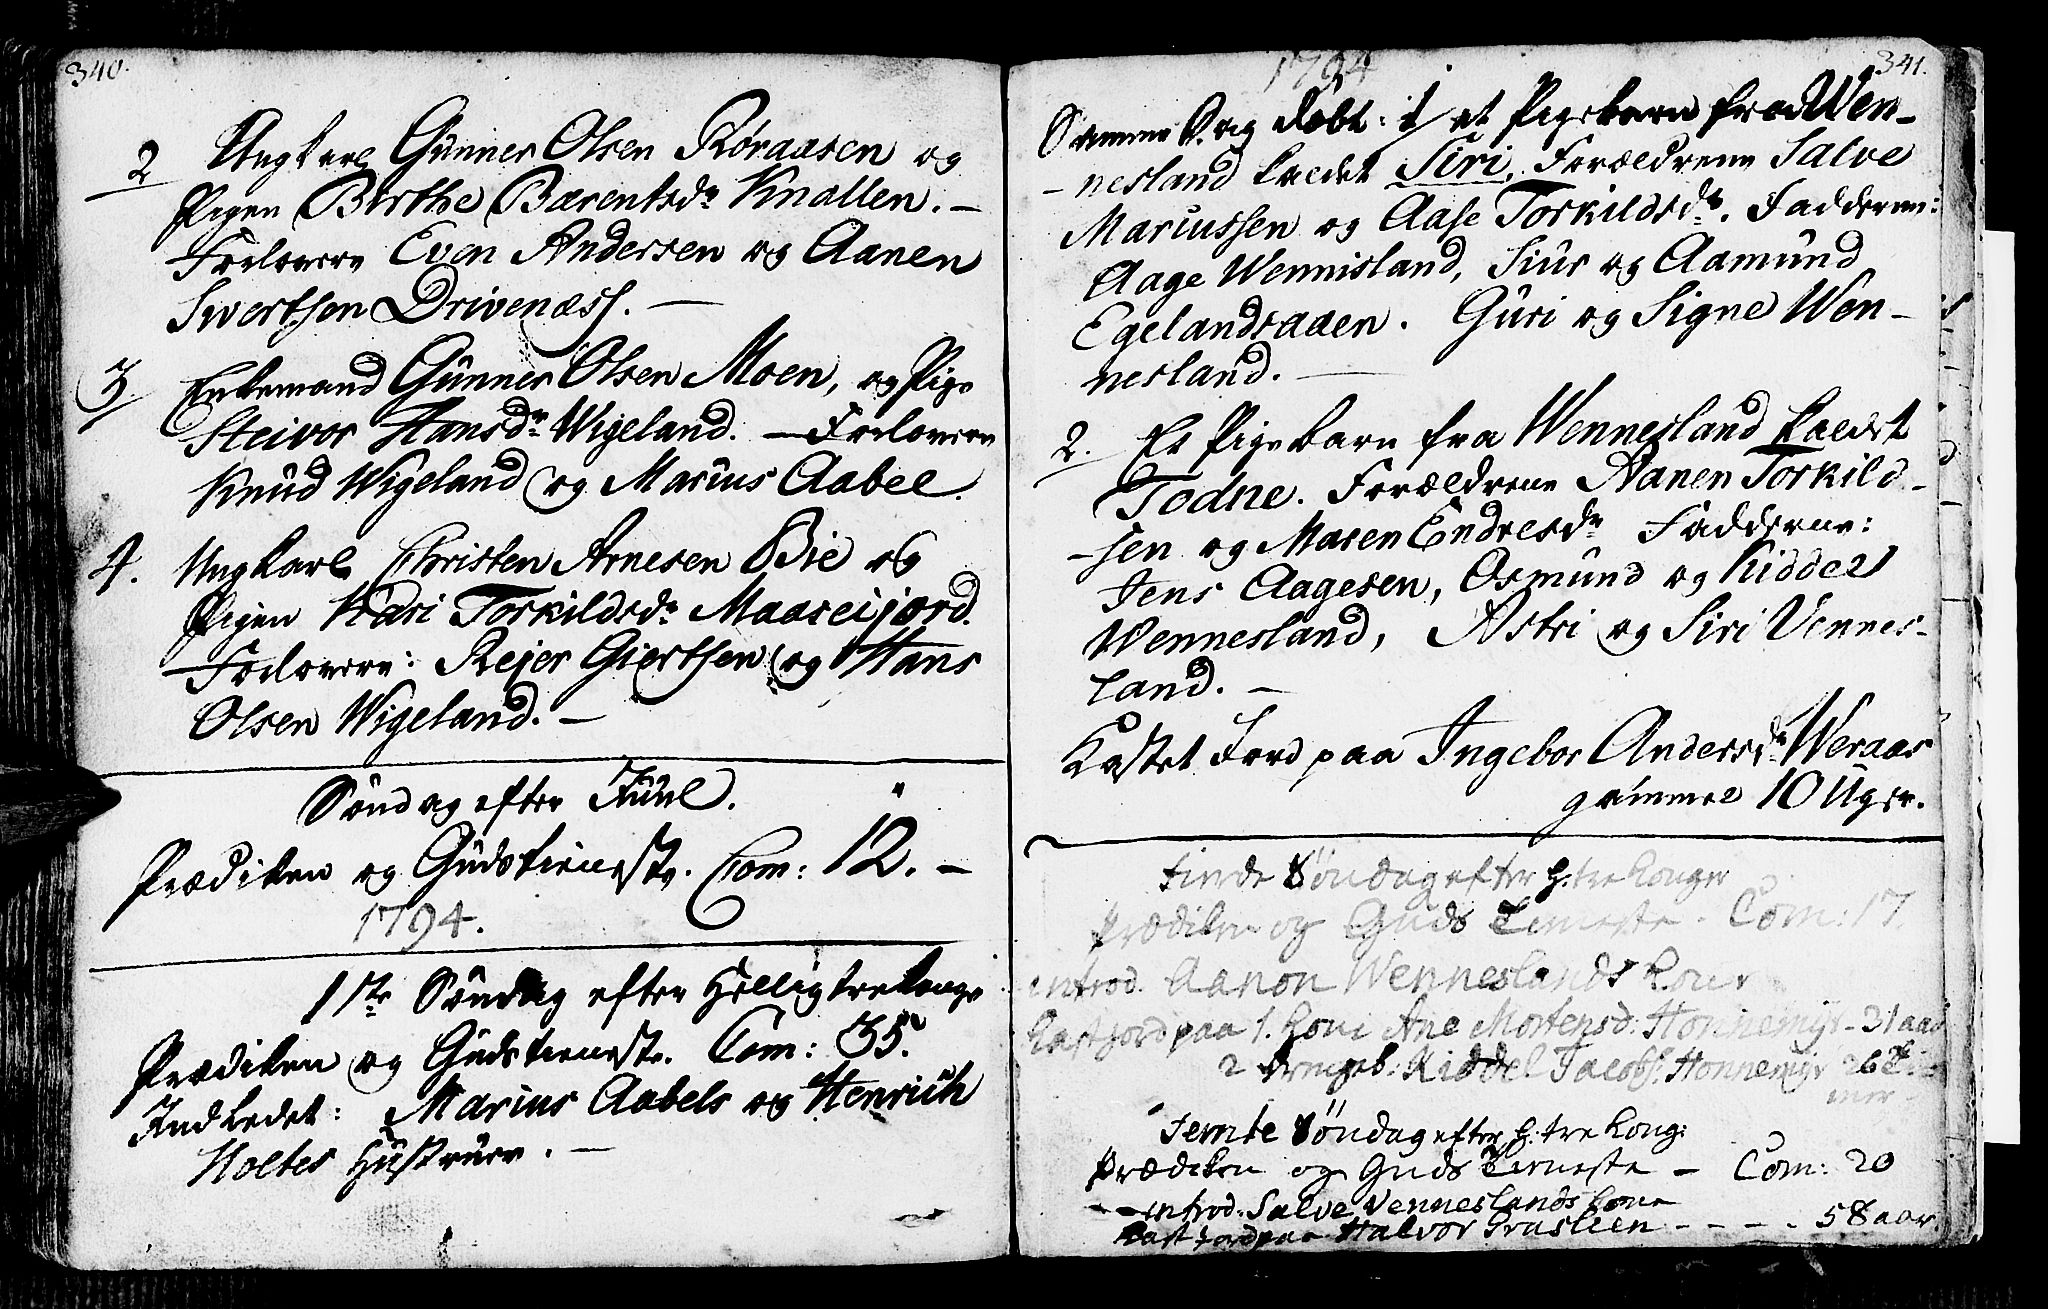 340.
2 Ungkarl Gunner Olsen Røraasen og
Pigen Birthe Bærentsdr Knallen. —
Forlovere Even Andersen og Aanen
Sivertsen Drivenæss. —
3 Enkemand Gunner Olsen Moen, og Pige
Steivor Hansdr Wigeland. — Forlovere
Knud Wigeland og Marius Aabel.
4. Ungkarl Christen Arnesen Bie og
Pigen Kari Torkildsdr Maaseijord.
Forlovere: Rejer Giertsen og Hans
Olsen Wigeland. —
Søndag efter Juul.
Prædiken og Gudstieneste. Com: 12. —
1794.
1ste Søndag efter Hellig tre Konge
Prædiken og Gudstieneste. Com: 35.
Indledet: Marius Aabels og Henrich
Holtes Hustruer. —
1794
341.
Samme Dag døbt: 1/ et Pigebarn fra Wen-
-nesland kaldet Siri, Forældrene Salve
Mariussen og Aase Torkildsdr. Fadderne:
Aage Wennisland, Siur og Aamund
Egelandsaaen. Guri og Signe Wen-
nesland. —
2. Et Pigebarn fra Wennesland kaldet
Todne. Forældrene Aanen Torkild-
-sen og Maren Endresdr Fadderne:
Jens Aagesen, Osmund og Kiddel
Wennesland, Astri og Siri Vennes-
land. —
Kastet Jord paa Ingebor Andersdr Weraas
gammel 10 Uger.
Fierde Søndag efter H: tre Konger
Prædiken og Guds Tieneste. Com: 17.
introd. Aanon Wenneslands Kone
Kast jord paa 1. Kone Ane Mortensd: Honnemyr - 31 aar
2 Drengeb: Kiddel Jacobs: Honnemyr 26 Ti
mer -
Femte Søndag efter H: tre Kong:
Prædiken og Guds Tieneste — Com: 20
- - introd. Salve Venneslands Kone
Kast jord paa Halvor Graslien - - - - 58 aar